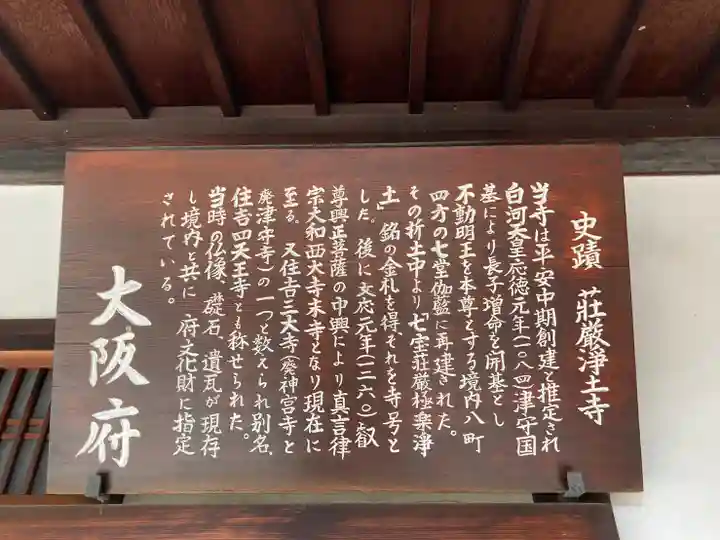 史蹟 荘厳浄土寺
当寺は平安中期創建と推定され
白河天皇応徳元年(一〇八四)津守国
基により長子増命を開基とし
不動明王を本尊とする境内八町
四方の七堂伽藍に再建された。
その折土中より「七宝荘厳極楽浄
土」銘の金札を得、それを寺号と
した。後に文応元年(一二六〇)叡
尊興正菩薩の中興により真言律
宗大和西大寺末寺となり現在に
至る。又住吉三大寺(廃神宮寺と
廃津守寺)の一つと数えられ別名、
住吉四天王寺とも称せられた。
当時の仏像、礎石、遺瓦が現存
し境内と共に府文化財に指定
されている。
大阪府